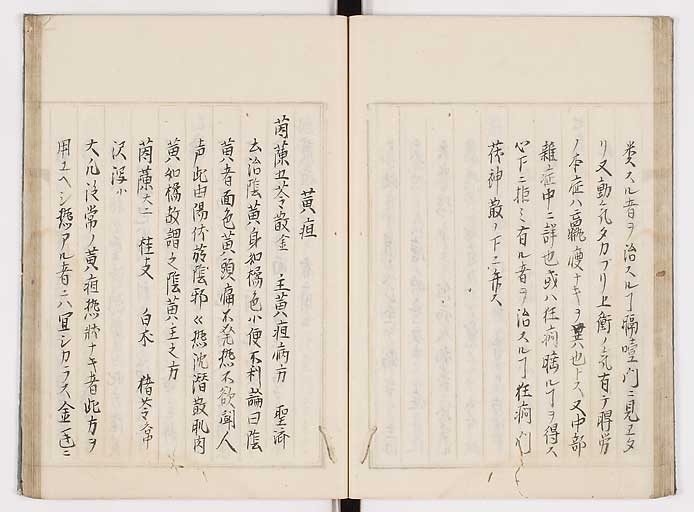 類スル者ヲ治スルヿ膈噎門ニ見ユ又
リ又動気タカブリ上衝ノ気有テ脬労
ノ本症ハ羸痩ナキヲ異也トス又中部
雑症中ニ詳也或ハ狂癇瞤ルヿヲ得ス
心下ニ拒ミ有ル者ヲ治スルヿ狂癇門
茯神散ノ下ニ弁ス
黄疸
茵蔯五苓散金 主黄疸病方 聖済
云治陰黄身如橘色小便不利論曰陰
黄者面色黄頭痛不発熱不欲聞人
声此由陽伏於陰邪々熱沈潜散肌肉
黄如橘故謂之陰黄主之方
茵蔯大二 桂支 白朮 猪苓常
沢瀉小
大凡従常ノ黄疸熱状ナキ者此方ヲ
用ユヘシ熱アル者ニハ宜シカラス金匱ニ